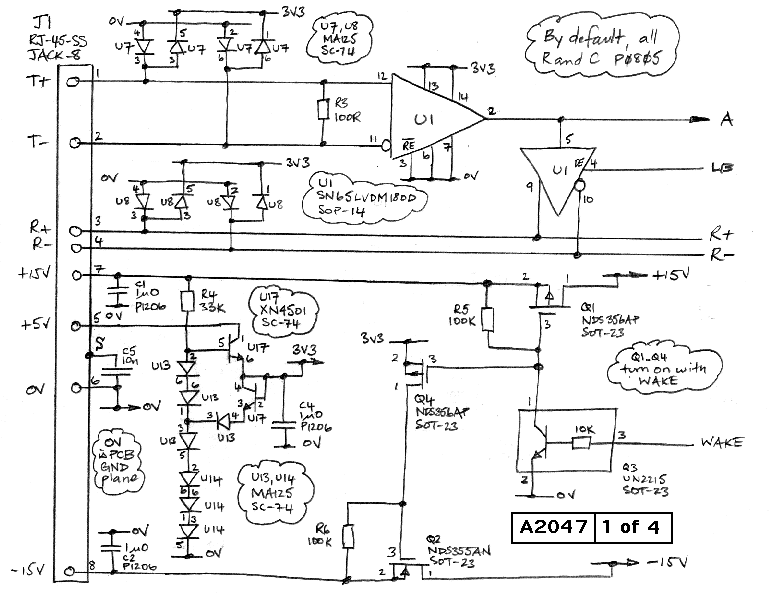 J1
RJ-45-SS
JACK-8
0V
4
5
3V3
U7
U7
U7
U7
3
3
2
1
6
6
U7, U8
MA125
SC-74
By default, all
R and C P0805
T+
1
12
3V3
13
14
R3
100R
U1
2
A
T-
2
11
RE
3
6
7
0V
5
U1
RE
4
LB
9
10
0V
4
5
3V3
U8
U8
U8
U8
3
3
2
1
6
6
U1
SN65LVDM180D
SOP-14
R+
3
R+
R-
4
R-
+15V
7
2
1
+15V
C1
1µ0
P1206
0V
R4
33K
U17
XN4501
SC-74
R5
100K
3
Q1
NDS356AP
SOT-23
+5V
5
5
U17
6
3V3
3V3
2
3
1
Q4
NDS356AP
SOT-23
Q1-Q4
turn on with
WAKE
S
C5
10n
U13
2
6
6
U13
1
4
2
3
U17
C4
1µ0
P1206
0V
0V
6
0V
3
4
U13
U13
3
5
0V
is PCB
GND
plane
1
10K
3
WAKE
2
0V
Q3
UN2215
SOT-23
U13, U14
MA125
SC-74
2
U14
6
6
U14
1
3
U14
5
0V
A2047
1 of 4
0V
1µ0
C2
P1206
R6
100K
3
Q2
NDS355AN
SOT-23
2
1
-15V
-15V
8